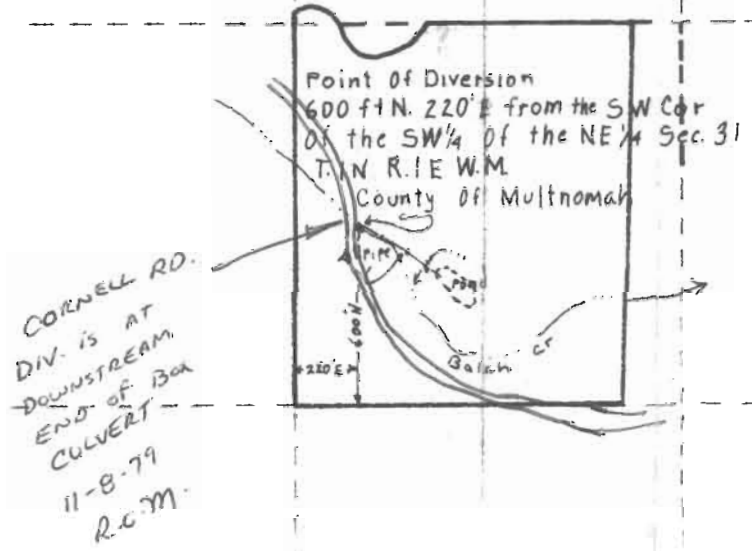 Point Of Diversion
600 ft N. 220' E from the SW Cor
Of the SW¼ Of the NE¼ Sec. 31
T. 1N R. 1E W.M.
County Of Multnomah
PIPE
POND
600'N
220'E
Balch Cr
CORNELL RD.
DIV. is AT
DOWNSTREAM
END of BOX
CULVERT
11-8-79
R.C.M.